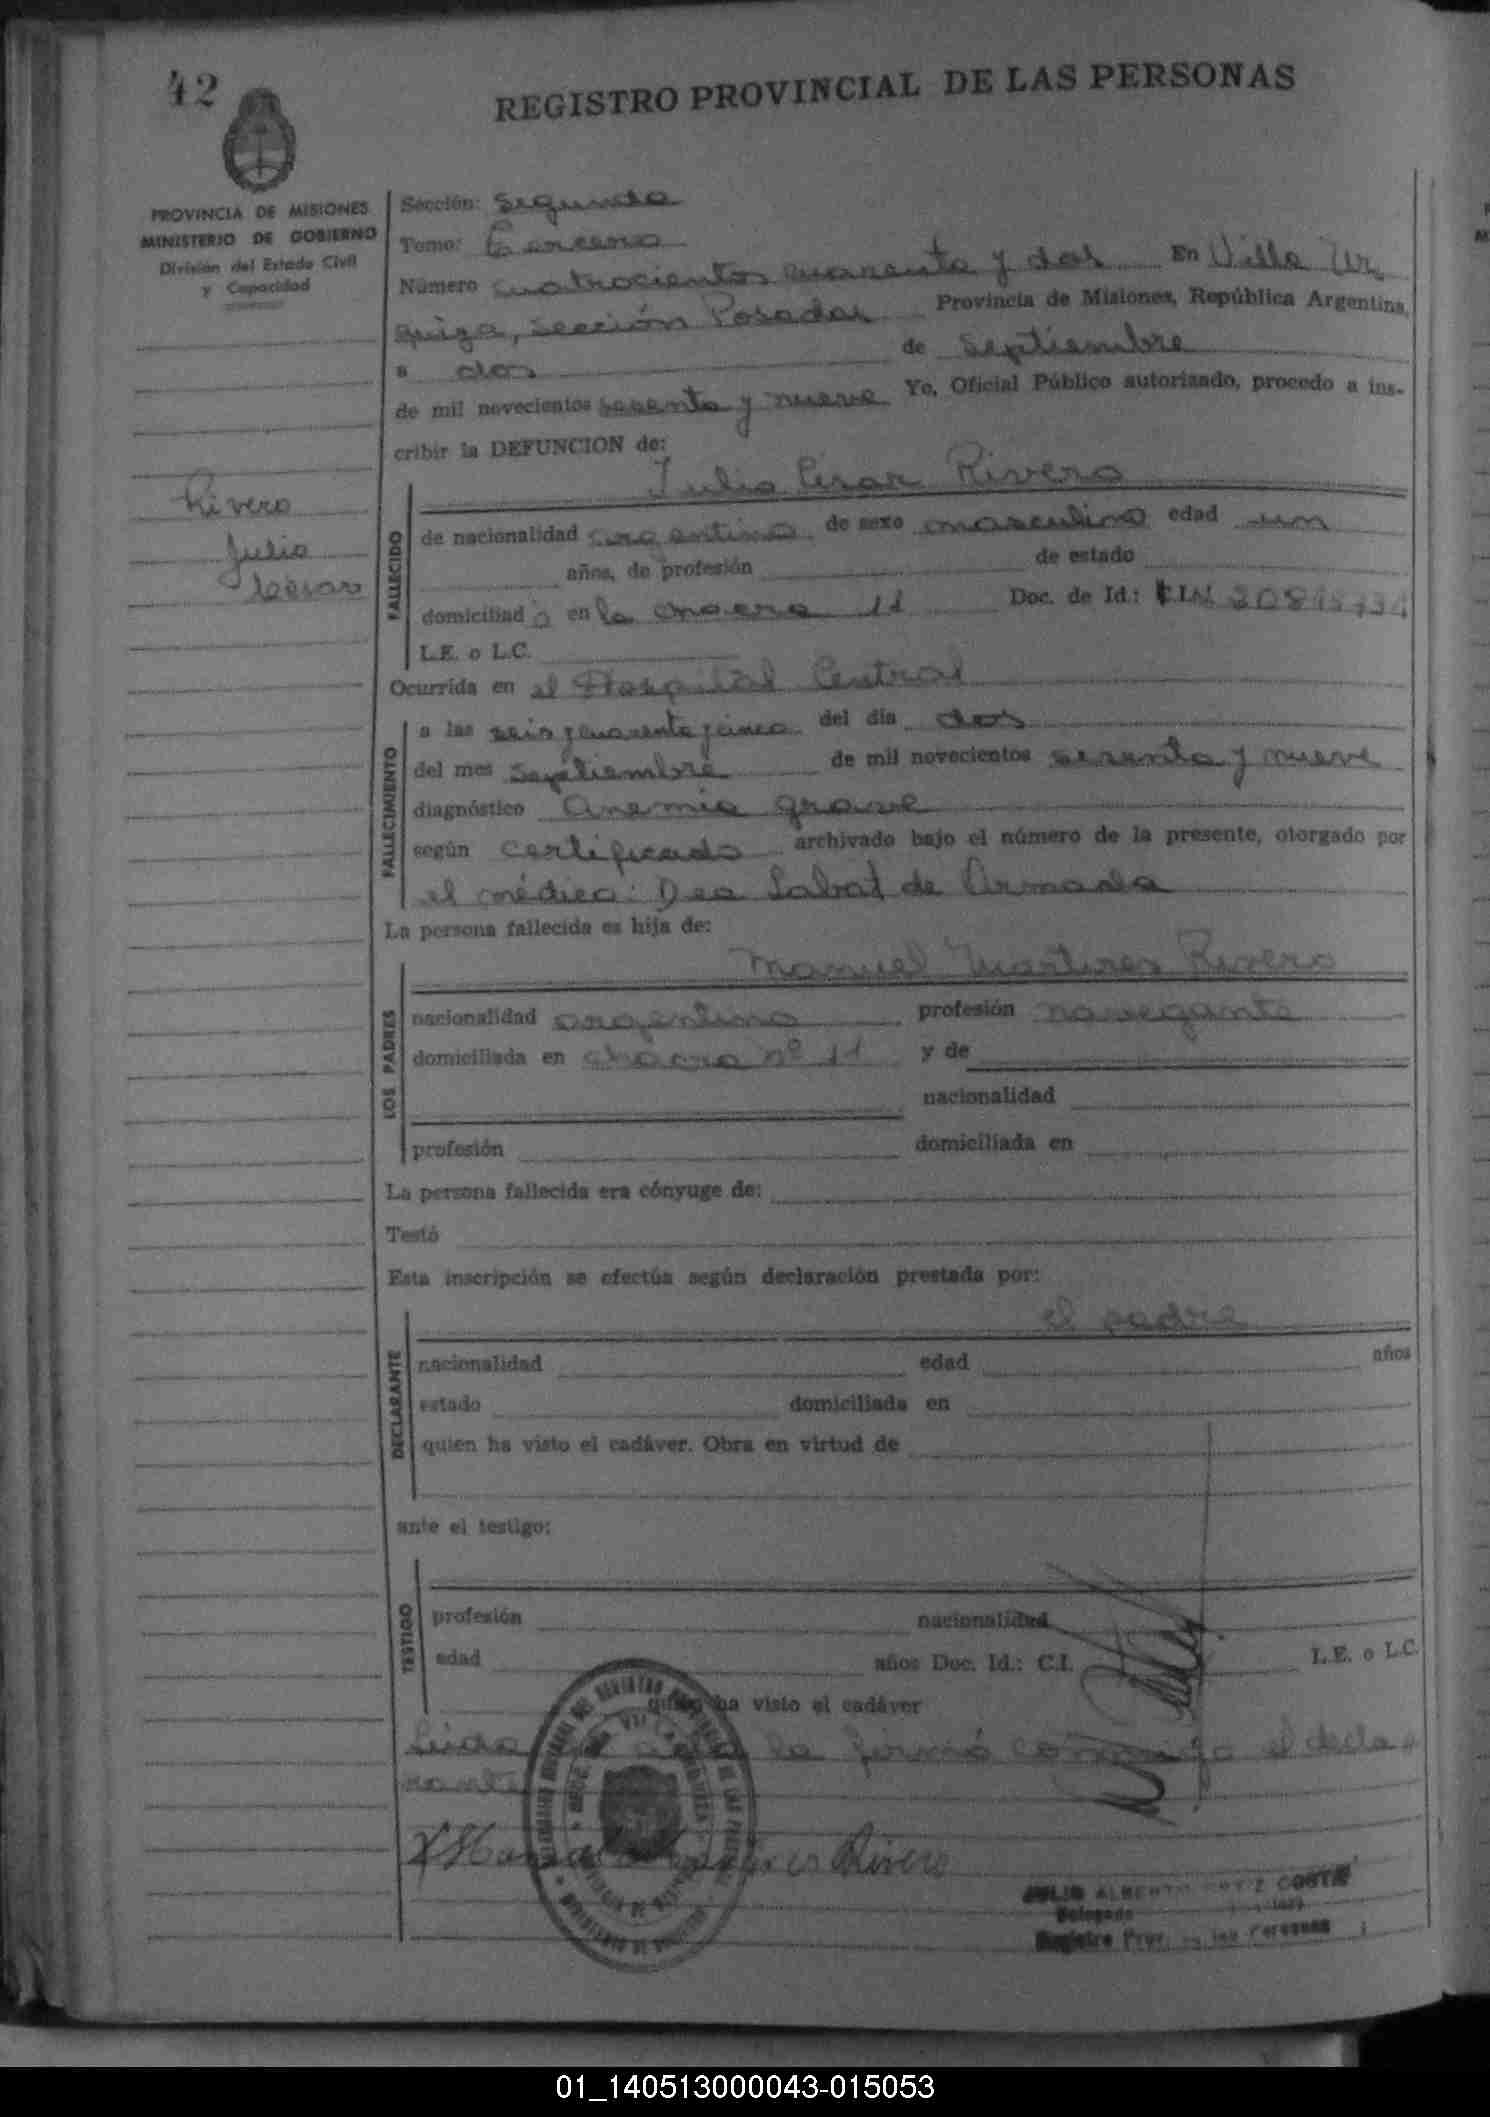 42
REGISTRO PROVINCIAL DE LAS PERSONAS
PROVINCIA DE MISIONES
MINISTERIO DE GOBIERNO
División del Estado Civil
y Capacidad
Sección: Segunda
Tomo: Tercero
Número cuatrocientos cuarenta y dos En Villa Ur
quiza, sección Posadas Provincia de Misiones, República Argentina,
a dos de Septiembre
de mil novecientos sesenta y nueve Yo, Oficial Público autorizado, procedo a ins-
cribir la DEFUNCION de:
Julio César Rivero
Rivero
Julio
César
FALLECIDO
de nacionalidad argentina de sexo masculino edad un
años, de profesión de estado
domiciliad o en la chacra 11 Doc. de Id.:
L.E. o L.C.
Ocurrida en el Hospital Central
FALLECIMIENTO
a las seis y cuarenta y cinco del día dos
del mes Septiembre de mil novecientos sesenta y nueve
diagnóstico anemia grave
según certificado archivado bajo el número de la presente, otorgado por
el médico: Dea Labat de Armada
La persona fallecida es hija de:
Manuel Martires Rivero
LOS PADRES
nacionalidad argentino profesión navegante
domiciliada en chacra nº 11 y de
nacionalidad
profesión domiciliada en
La persona fallecida era cónyuge de:
Testó
Esta inscripción se efectúa según declaración prestada por:
el padre
DECLARANTE
nacionalidad edad años
estado domiciliada en
quien ha visto el cadáver. Obra en virtud de
ante el testigo:
TESTIGO
profesión nacionalidad
edad años Doc. Id.: C.I. L.E. o L.C.
quien ha visto el cadáver
Leida acta la firmó conmigo el decla
rante
Rivero
JULIO ALBERTO ORTIZ COSTA
Delegado
Registro Prov. de las Personas
01_140513000043-015053